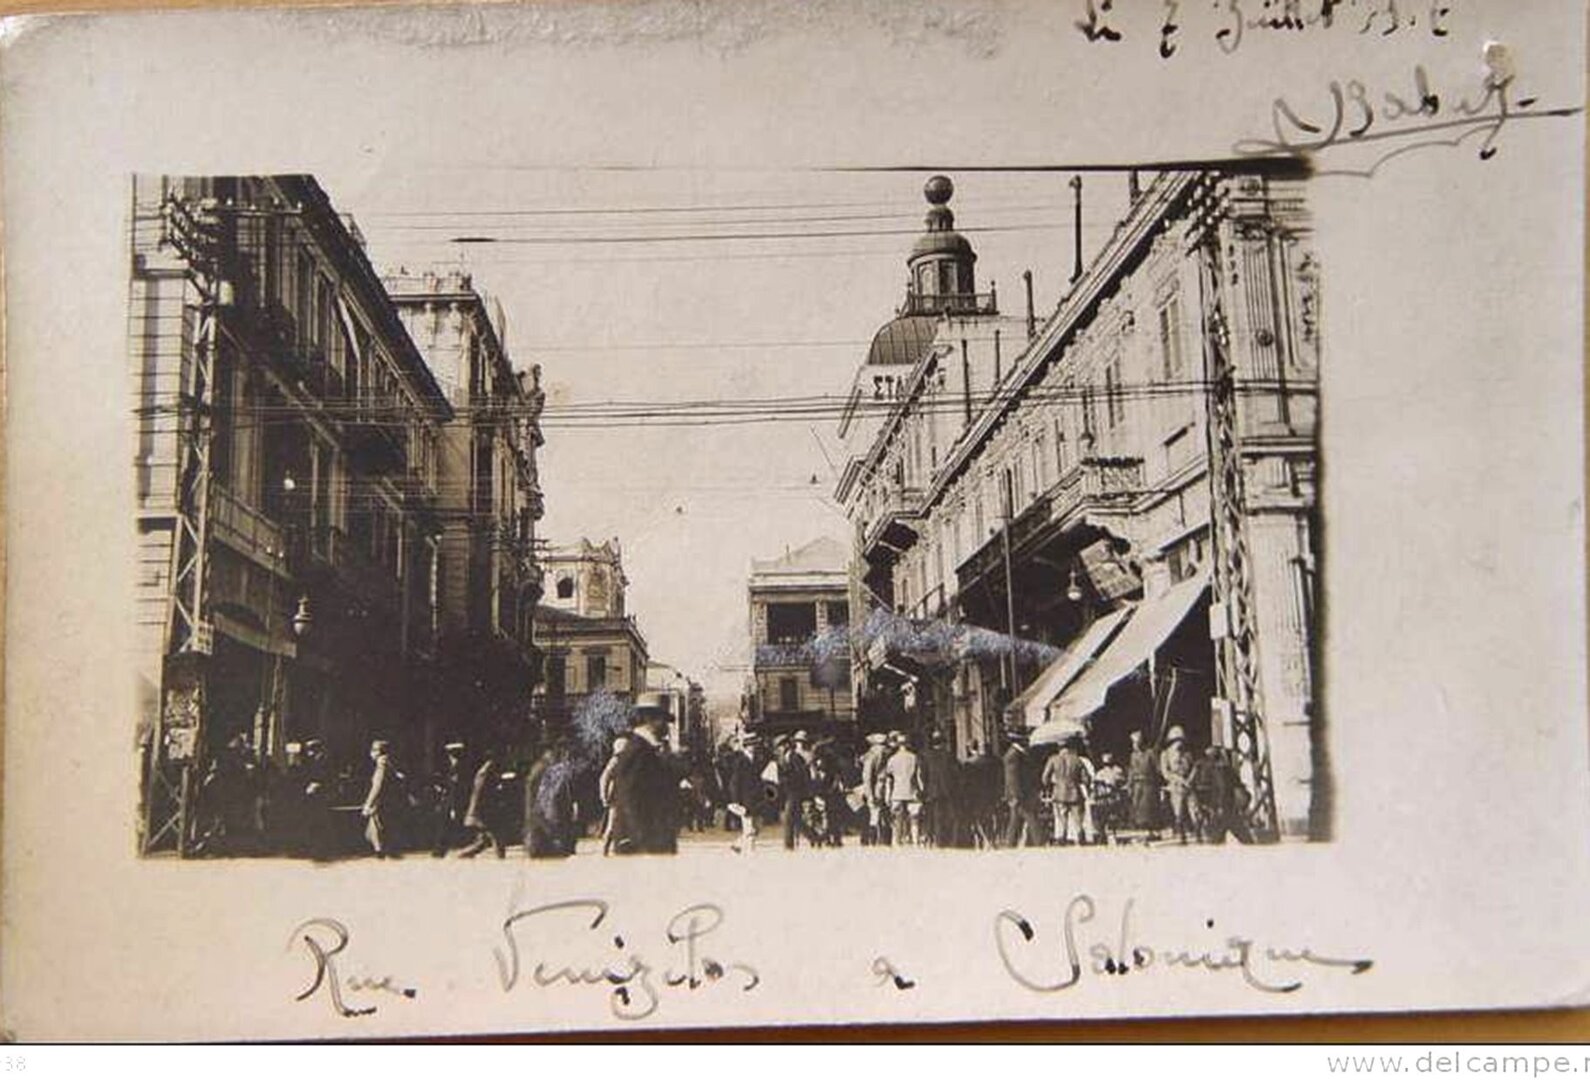 Le 7 Juillet 191
ΣΤΑ
Rue Venizelos a Salonique
38
www.delcampe.n